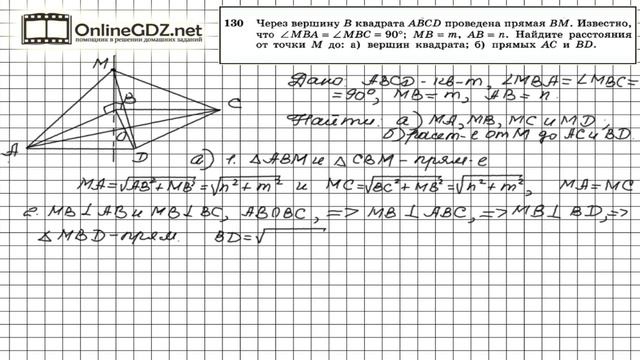 OnlineGDZ.net
помощник в решении домашних заданий
130 Через вершину B квадрата ABCD проведена прямая BM. Известно,
что ∠MBA = ∠MBC = 90°; MB = m, AB = n. Найдите расстояния
от точки M до: а) вершин квадрата; б) прямых AC и BD.
M
B
C
O
A
D
Дано: ABCD - кв-т, ∠MBA = ∠MBC =
= 90°, MB = m, AB = n.
Найти: а) MA, MB, MC и MD.
б) расст-е от M до AC и BD.
а) 1. △ABM и △CBM - прям-е
MA = √AB² + MB² = √n² + m² и MC = √BC² + MB² = √n² + m², MA = MC
2. MB ⊥ AB и MB ⊥ BC, AB∩BC, => MB ⊥ ABC, => MB ⊥ BD, =>
△MBD - прям. BD = √